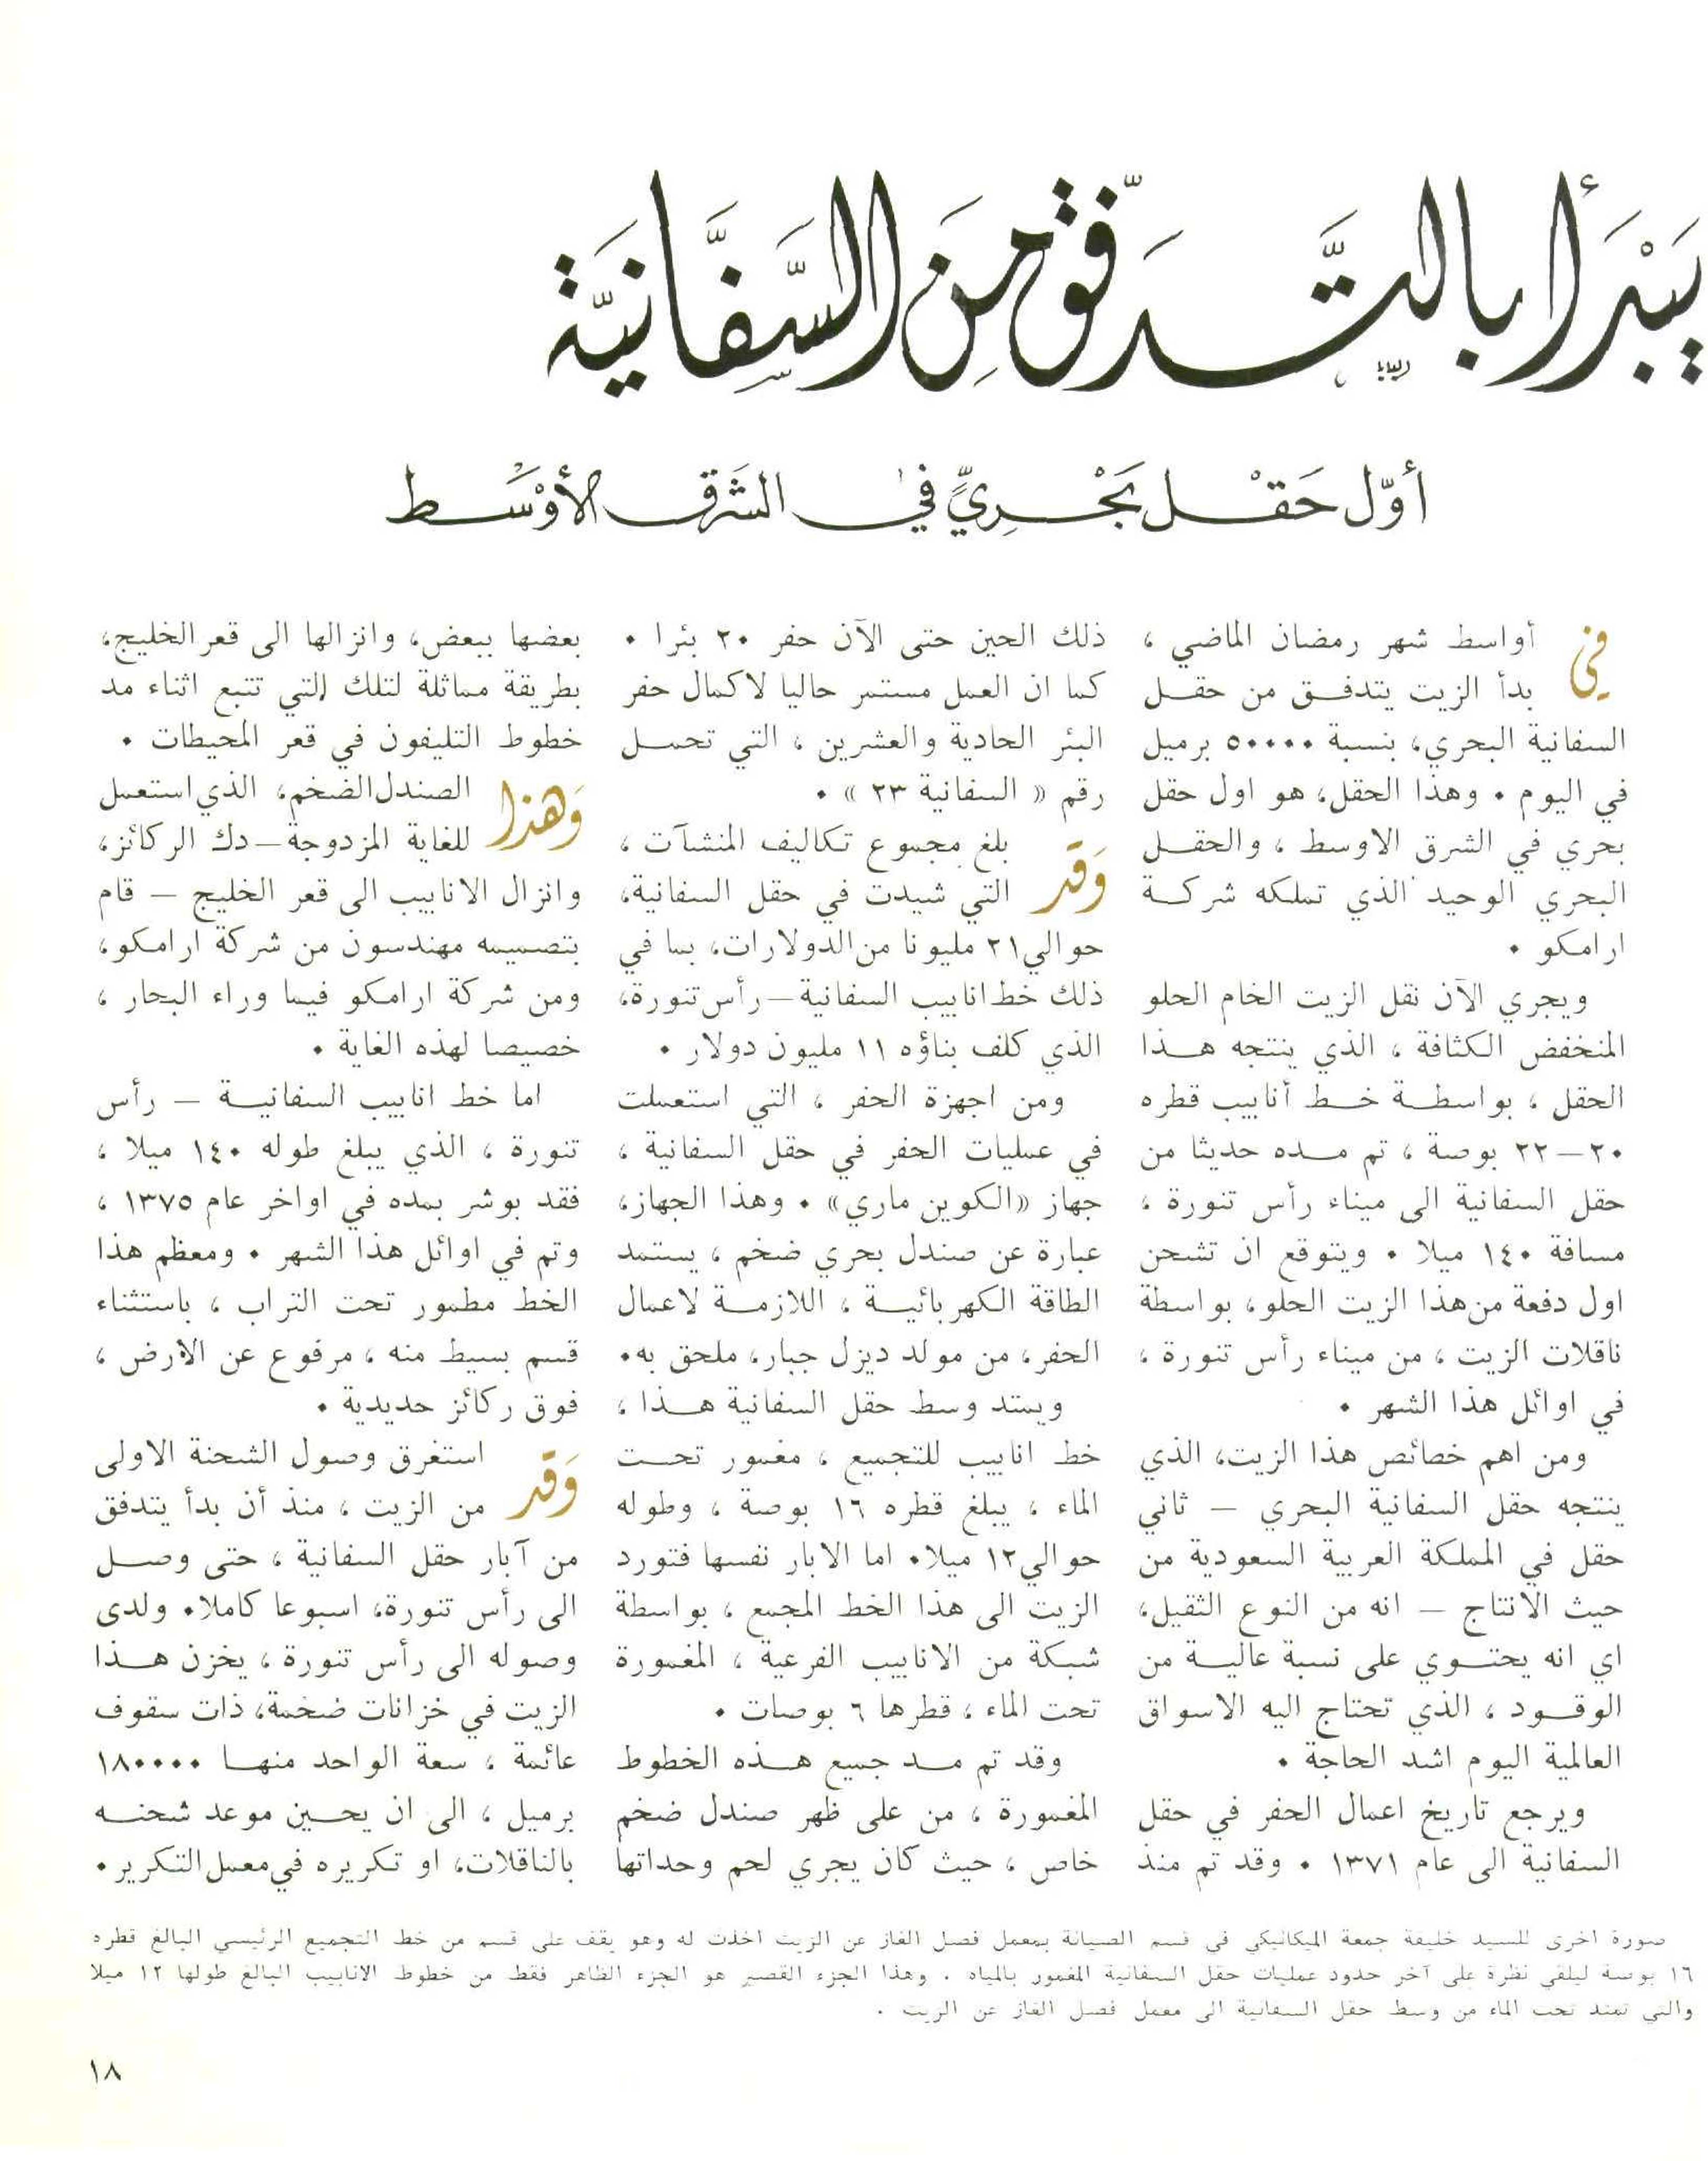 يَبْدَأ بالتَّدفّق مِنَ السَّفَّانيَّة
أوّل حَقْل بَحْريٍّ في الشَرق الأوْسَط
في أواسط شهر رمضان الماضي ،
بدأ الزيت يتدفق من حقل
السفانية البحري، بنسبة ٥٠٠٠٠ برميل
في اليوم . وهذا الحقل، هو اول حقل
بحري في الشرق الاوسط ، والحقل
البحري الوحيد الذي تملكه شركة
ارامكو .
ويجري الآن نقل الزيت الخام الحلو
المنخفض الكثافة ، الذي ينتجه هذا
الحقل ، بواسطة خط أنابيب قطره
٢٠ – ٢٢ بوصة ، تم مده حديثا من
حقل السفانية الى ميناء رأس تنورة ،
مسافة ١٤٠ ميلا . ويتوقع ان تشحن
اول دفعة من هذا الزيت الحلو، بواسطة
ناقلات الزيت ، من ميناء رأس تنورة ،
في اوائل هذا الشهر .
ومن اهم خصائص هذا الزيت، الذي
ينتجه حقل السفانية البحري – ثاني
حقل في المملكة العربية السعودية من
حيث الانتاج – انه من النوع الثقيل،
اي انه يحتوي على نسبة عالية من
الوقود ، الذي تحتاج اليه الاسواق
العالمية اليوم اشد الحاجة .
ويرجع تاريخ اعمال الحفر في حقل
السفانية الى عام ١٣٧١ . وقد تم منذ
ذلك الحين حتى الآن حفر ٢٠ بئرا .
كما ان العمل مستمر حاليا لاكمال حفر
البئر الحادية والعشرين ، التي تحمل
رقم « السفانية ٢٣ » .
وَقد بلغ مجموع تكاليف المنشآت ،
التي شيدت في حقل السفانية،
حوالي ٢١ مليونا من الدولارات، بما في
ذلك خط انابيب السفانية – رأس تنورة،
الذي كلف بناؤه ١١ مليون دولار .
ومن اجهزة الحفر ، التي استعملت
في عمليات الحفر في حقل السفانية ،
جهاز «الكوين ماري» . وهذا الجهاز،
عبارة عن صندل بحري ضخم ، يستمد
الطاقة الكهربائية ، اللازمة لاعمال
الحفر، من مولد ديزل جبار، ملحق به.
ويمتد وسط حقل السفانية هذا ،
خط انابيب للتجميع ، مغمور تحت
الماء ، يبلغ قطره ١٦ بوصة ، وطوله
حوالي ١٢ ميلا. اما الابار نفسها فتورد
الزيت الى هذا الخط المجمع ، بواسطة
شبكة من الانابيب الفرعية ، المغمورة
تحت الماء ، قطرها ٦ بوصات .
وقد تم مد جميع هذه الخطوط
المغمورة ، من على ظهر صندل ضخم
خاص ، حيث كان يجري لحم وحداتها
بعضها ببعض، وانزالها الى قعر الخليج،
بطريقة مماثلة لتلك التي تتبع اثناء مد
خطوط التليفون في قعر المحيطات .
وَهذا الصندل الضخم، الذي استعمل
للغاية المزدوجة – دك الركائز،
وانزال الانابيب الى قعر الخليج – قام
بتصميمه مهندسون من شركة ارامكو،
ومن شركة ارامكو فيما وراء البحار ،
خصيصا لهذه الغاية .
اما خط انابيب السفانية – رأس
تنورة ، الذي يبلغ طوله ١٤٠ ميلا ،
فقد بوشر بمده في اواخر عام ١٣٧٥ ،
وتم في اوائل هذا الشهر . ومعظم هذا
الخط مطمور تحت التراب ، باستثناء
قسم بسيط منه ، مرفوع عن الارض ،
فوق ركائز حديدية .
وَقد استغرق وصول الشحنة الاولى
من الزيت ، منذ أن بدأ يتدفق
من آبار حقل السفانية ، حتى وصل
الى رأس تنورة، اسبوعا كاملا. ولدى
وصوله الى رأس تنورة ، يخزن هذا
الزيت في خزانات ضخمة، ذات سقوف
عائمة ، سعة الواحد منها ١٨٠٠٠٠
برميل ، الى ان يحين موعد شحنه
بالناقلات، او تكريره في معمل التكرير .
صورة اخرى للسيد خليفة جمعة الميكانيكي في قسم الصيانة بمعمل فصل الغاز عن الزيت اخذت له وهو يقف على قسم من خط التجميع الرئيسي البالغ قطره
١٦ بوصة ليلقي نظرة على آخر حدود عمليات حقل السفانية المغمور بالمياه . وهذا الجزء القصير هو الجزء الظاهر فقط من خطوط الانابيب البالغ طولها ١٢ ميلا
والتي تمتد تحت الماء من وسط حقل السفانية الى معمل فصل الغاز عن الزيت .
١٨